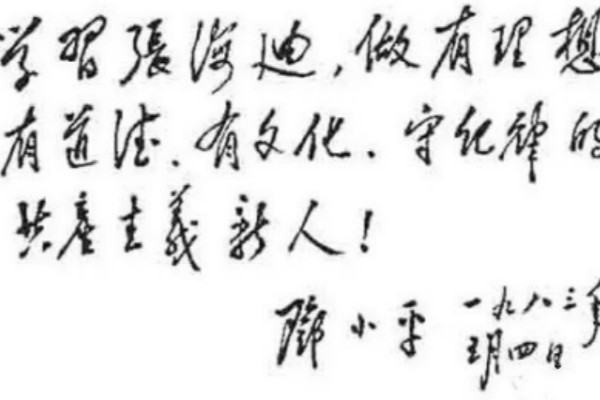 学習張海迪，做有理想
有道德、有文化、守纪律的
共產主義新人！
鄧小平
一九八三年
五月四日